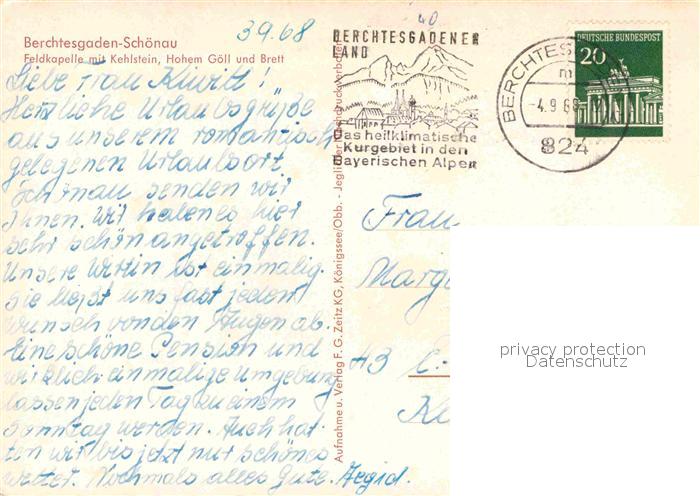 3.9.68
40
Berchtesgaden-Schönau
Feldkapelle mit Kehlstein, Hohem Göll und Brett
Liebe Frau !
Herzliche Urlaubsgrüße
aus unserem romantisch
gelegenen Urlaubsort
Schönau senden wir
Ihnen. Wir haben es hier
sehr schön angetroffen.
Unsere Wirtin ist einmalig.
Sie ließt uns fast jeden
Wunsch von den Augen ab.
Eine schöne Pension und
wirklich einmalige Umgebung
lassen jeden Tag zu einem
Sonntag werden. Auch hat-
ten wir bis jetzt nur schönes
Wetter. Nochmals alles Gute. Aegid.
Aufnahme u. Verlag F. G. Zeitz KG, Königssee/Obb. - Jeglicher Nachdruck verboten
BERCHTESGADENER
LAND
Das heilklimatische
Kurgebiet in den
Bayerischen Alpen
BERCHTES
m
-4.9.68
824
DEUTSCHE BUNDESPOST
20
Frau
Marg
43 E-
privacy protection
Datenschutz